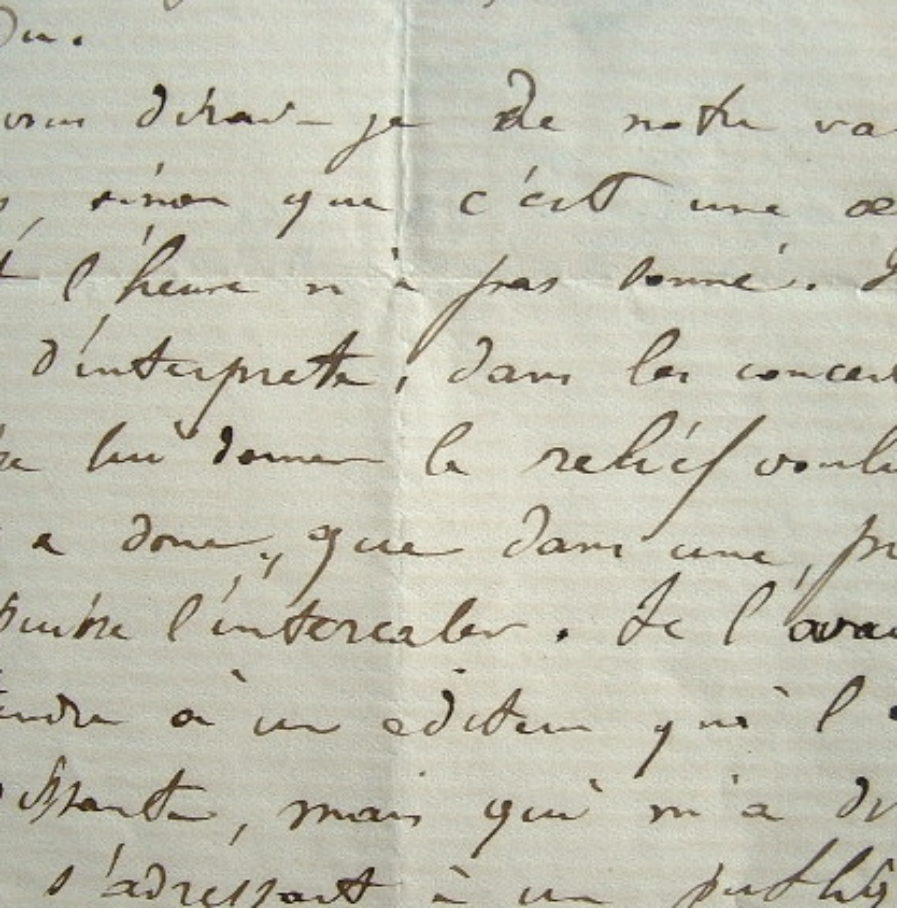 dirai-je de notre va
sinon que c'est une œ
l'heure n'a pas sonné.
d'interprète, dans les concer
lui donner le relief voulu
a donc, que dans une, pr
puisse l'intercaler. Je l'avai
endre à un éditeur qui l'a
issante, mais qui m'a d
s'adressant à un public